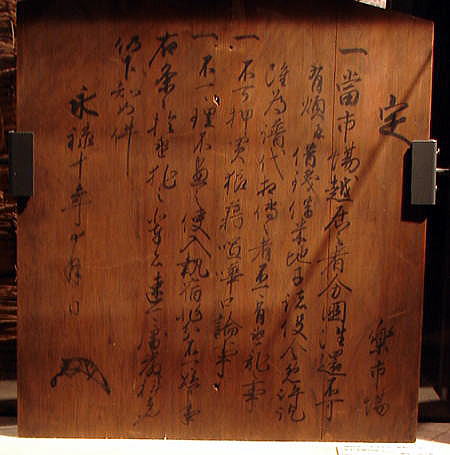 定
樂市場
一當市場越居之者分國往還不可
有煩并借銭借米地子諸役令免許訖
雖為譜代相傳之者不可有違乱事
一不可押買狼藉喧嘩口論事
一不可理不尽之使入執宿非分不可懸申事
右条々於違犯之輩者速可處厳科者也
仍下知如件
永禄十年十月日